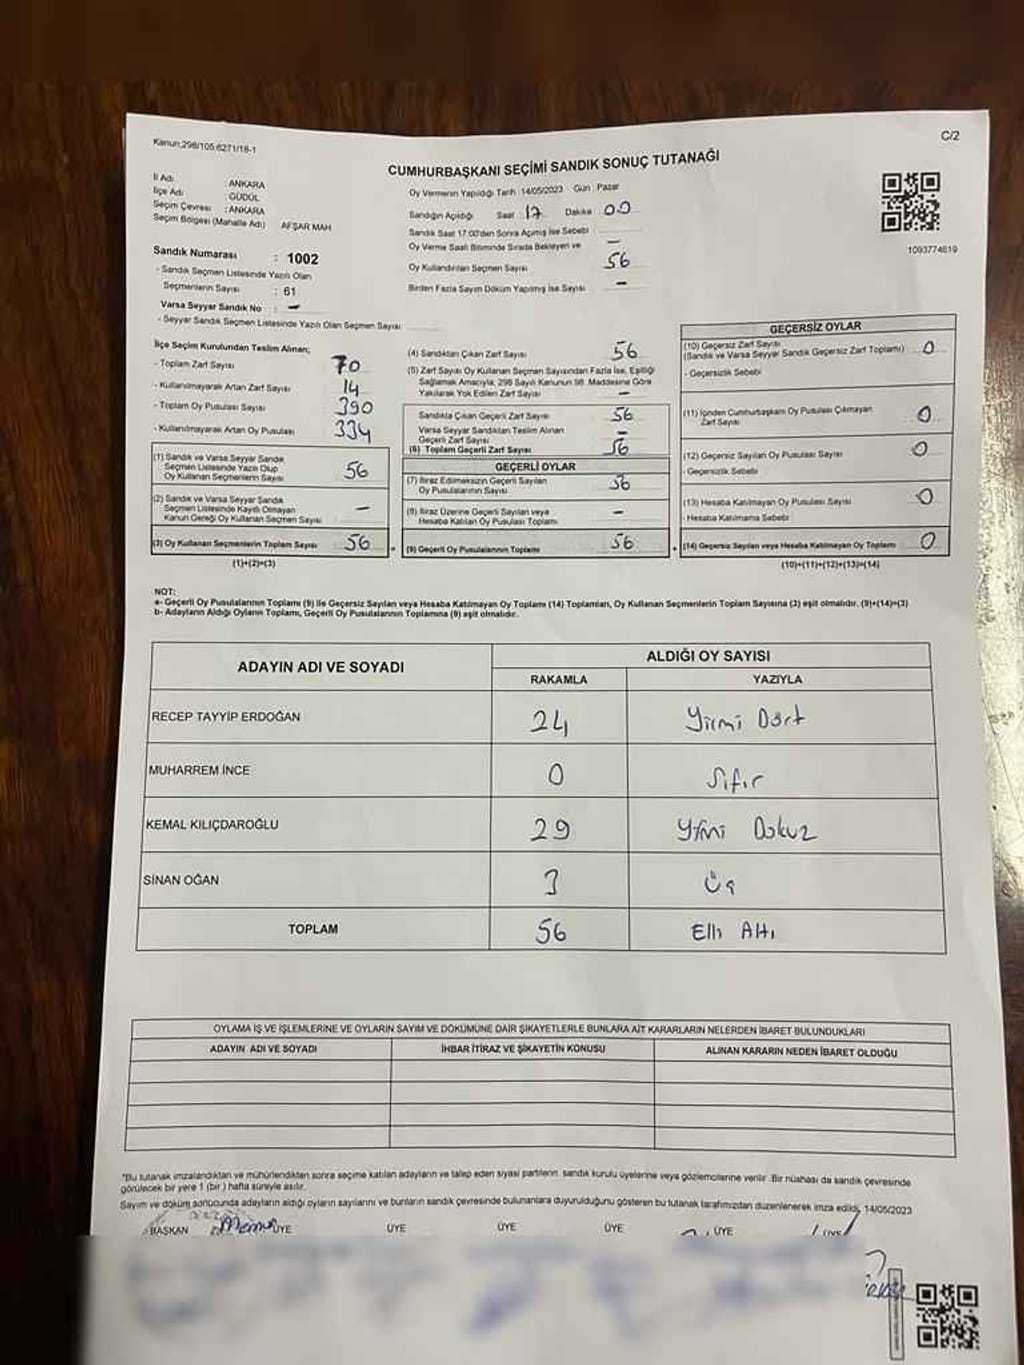 Kanun;298/105;6271/18-1
C/2
CUMHURBAŞKANI SEÇİMİ SANDIK SONUÇ TUTANAĞI
İl Adı : ANKARA
İlçe Adı : GÜDÜL
Seçim Çevresi : ANKARA
Seçim Bölgesi (Mahalle Adı) AFŞAR MAH
Oy Vermenin Yapıldığı Tarih :14/05/2023 Gün : Pazar
Sandığın Açıldığı Saat 17 Dakika 00
Sandık Saat 17:00'den Sonra Açımış İse Sebebi
Oy Verme Saati Bitiminde Sırada Bekleyen ve —
Oy Kullandırılan Seçmen Sayısı 56
Birden Fazla Sayım Döküm Yapılmış İse Sayısı —
1093774619
Sandık Numarası : 1002
- Sandık Seçmen Listesinde Yazılı Olan
Seçmenlerin Sayısı : 61
Varsa Seyyar Sandık No : —
- Seyyar Sandık Seçmen Listesinde Yazılı Olan Seçmen Sayısı
İlçe Seçim Kurulundan Teslim Alınan;
- Toplam Zarf Sayısı 70
- Kullanılmayarak Artan Zarf Sayısı 14
- Toplam Oy Pusulası Sayısı 390
- Kullanılmayarak Artan Oy Pusulası 334
(1) Sandık ve Varsa Seyyar Sandık
Seçmen Listesinde Yazılı Olup
Oy Kullanan Seçmenlerin Sayısı 56
(2) Sandık ve Varsa Seyyar Sandık
Seçmen Listesinde Kaydı Olmayan
Kanun Gereği Oy Kullanan Seçmen Sayısı —
(3) Oy Kullanan Seçmenlerin Toplam Sayısı 56
(1)+(2)=(3)
(4) Sandıktan Çıkan Zarf Sayısı 56
(5) Zarf Sayısı Oy Kullanan Seçmen Sayısından Fazla İse, Eşitliği
Sağlamak Amacıyla, 298 Sayılı Kanunun 98. Maddesine Göre
Yakılarak Yok Edilen Zarf Sayısı —
Sandıkta Çıkan Geçerli Zarf Sayısı 56
Varsa Seyyar Sandıktan Teslim Alınan
Geçerli Zarf Sayısı —
(6) Toplam Geçerli Zarf Sayısı 56
GEÇERLİ OYLAR
(7) İtiraz Edilmeksizin Geçerli Sayılan
Oy Pusulalarının Sayısı 56
(8) İtiraz Üzerine Geçerli Sayılan veya
Hesaba Katılan Oy Pusulası Toplamı —
(9) Geçerli Oy Pusulalarının Toplamı 56
GEÇERSİZ OYLAR
(10) Geçersiz Zarf Sayısı
(Sandık ve Varsa Seyyar Sandık Geçersiz Zarf Toplamı) 0
- Geçersizlik Sebebi
(11) İçinden Cumhurbaşkanı Oy Pusulası Çıkmayan
Zarf Sayısı 0
(12) Geçersiz Sayılan Oy Pusulası Sayısı 0
- Geçersizlik Sebebi
(13) Hesaba Katılmayan Oy Pusulası Sayısı 0
- Hesaba Katılmama Sebebi
(14) Geçersiz Sayılan veya Hesaba Katılmayan Oy Toplamı 0
(10)+(11)+(12)+(13)=(14)
NOT:
a- Geçerli Oy Pusulalarının Toplamı (9) ile Geçersiz Sayılan veya Hesaba Katılmayan Oy Toplamı (14) Toplamları, Oy Kullanan Seçmenlerin Toplam Sayısına (3) eşit olmalıdır. (9)+(14)=(3)
b- Adayların Aldığı Oyların Toplamı, Geçerli Oy Pusulalarının Toplamına (9) eşit olmalıdır.
ADAYIN ADI VE SOYADI
ALDIĞI OY SAYISI
RAKAMLA YAZIYLA
RECEP TAYYİP ERDOĞAN 24 Yirmi Dört
MUHARREM İNCE 0 Sıfır
KEMAL KILIÇDAROĞLU 29 Yirmi Dokuz
SİNAN OĞAN 3 Üç
TOPLAM 56 Elli Altı
OYLAMA İŞ VE İŞLEMLERİNE VE OYLARIN SAYIM VE DÖKÜMÜNE DAİR ŞİKAYETLERLE BUNLARA AİT KARARLARIN NELERDEN İBARET BULUNDUKLARI
ADAYIN ADI VE SOYADI İHBAR İTİRAZ VE ŞİKAYETİN KONUSU ALINAN KARARIN NEDEN İBARET OLDUĞU
*Bu tutanak imzalandıktan ve mühürlendikten sonra seçime katılan adayların ve talep eden siyasi partilerin sandık kurulu üyelerine veya gözlemcilerine verilir. Bir nüshası da sandık çevresinde
görülecek bir yere 1 (bir) hafta süreyle asılır.
Sayım ve döküm sonucunda adayların aldığı oyların sayılarını ve bunların sandık çevresinde bulunanlara duyurulduğunu gösteren bu tutanak tarafımızdan düzenlenerek imza edildi. 14/05/2023
BAŞKAN Memur ÜYE ÜYE ÜYE ÜYE ÜYE ÜYE